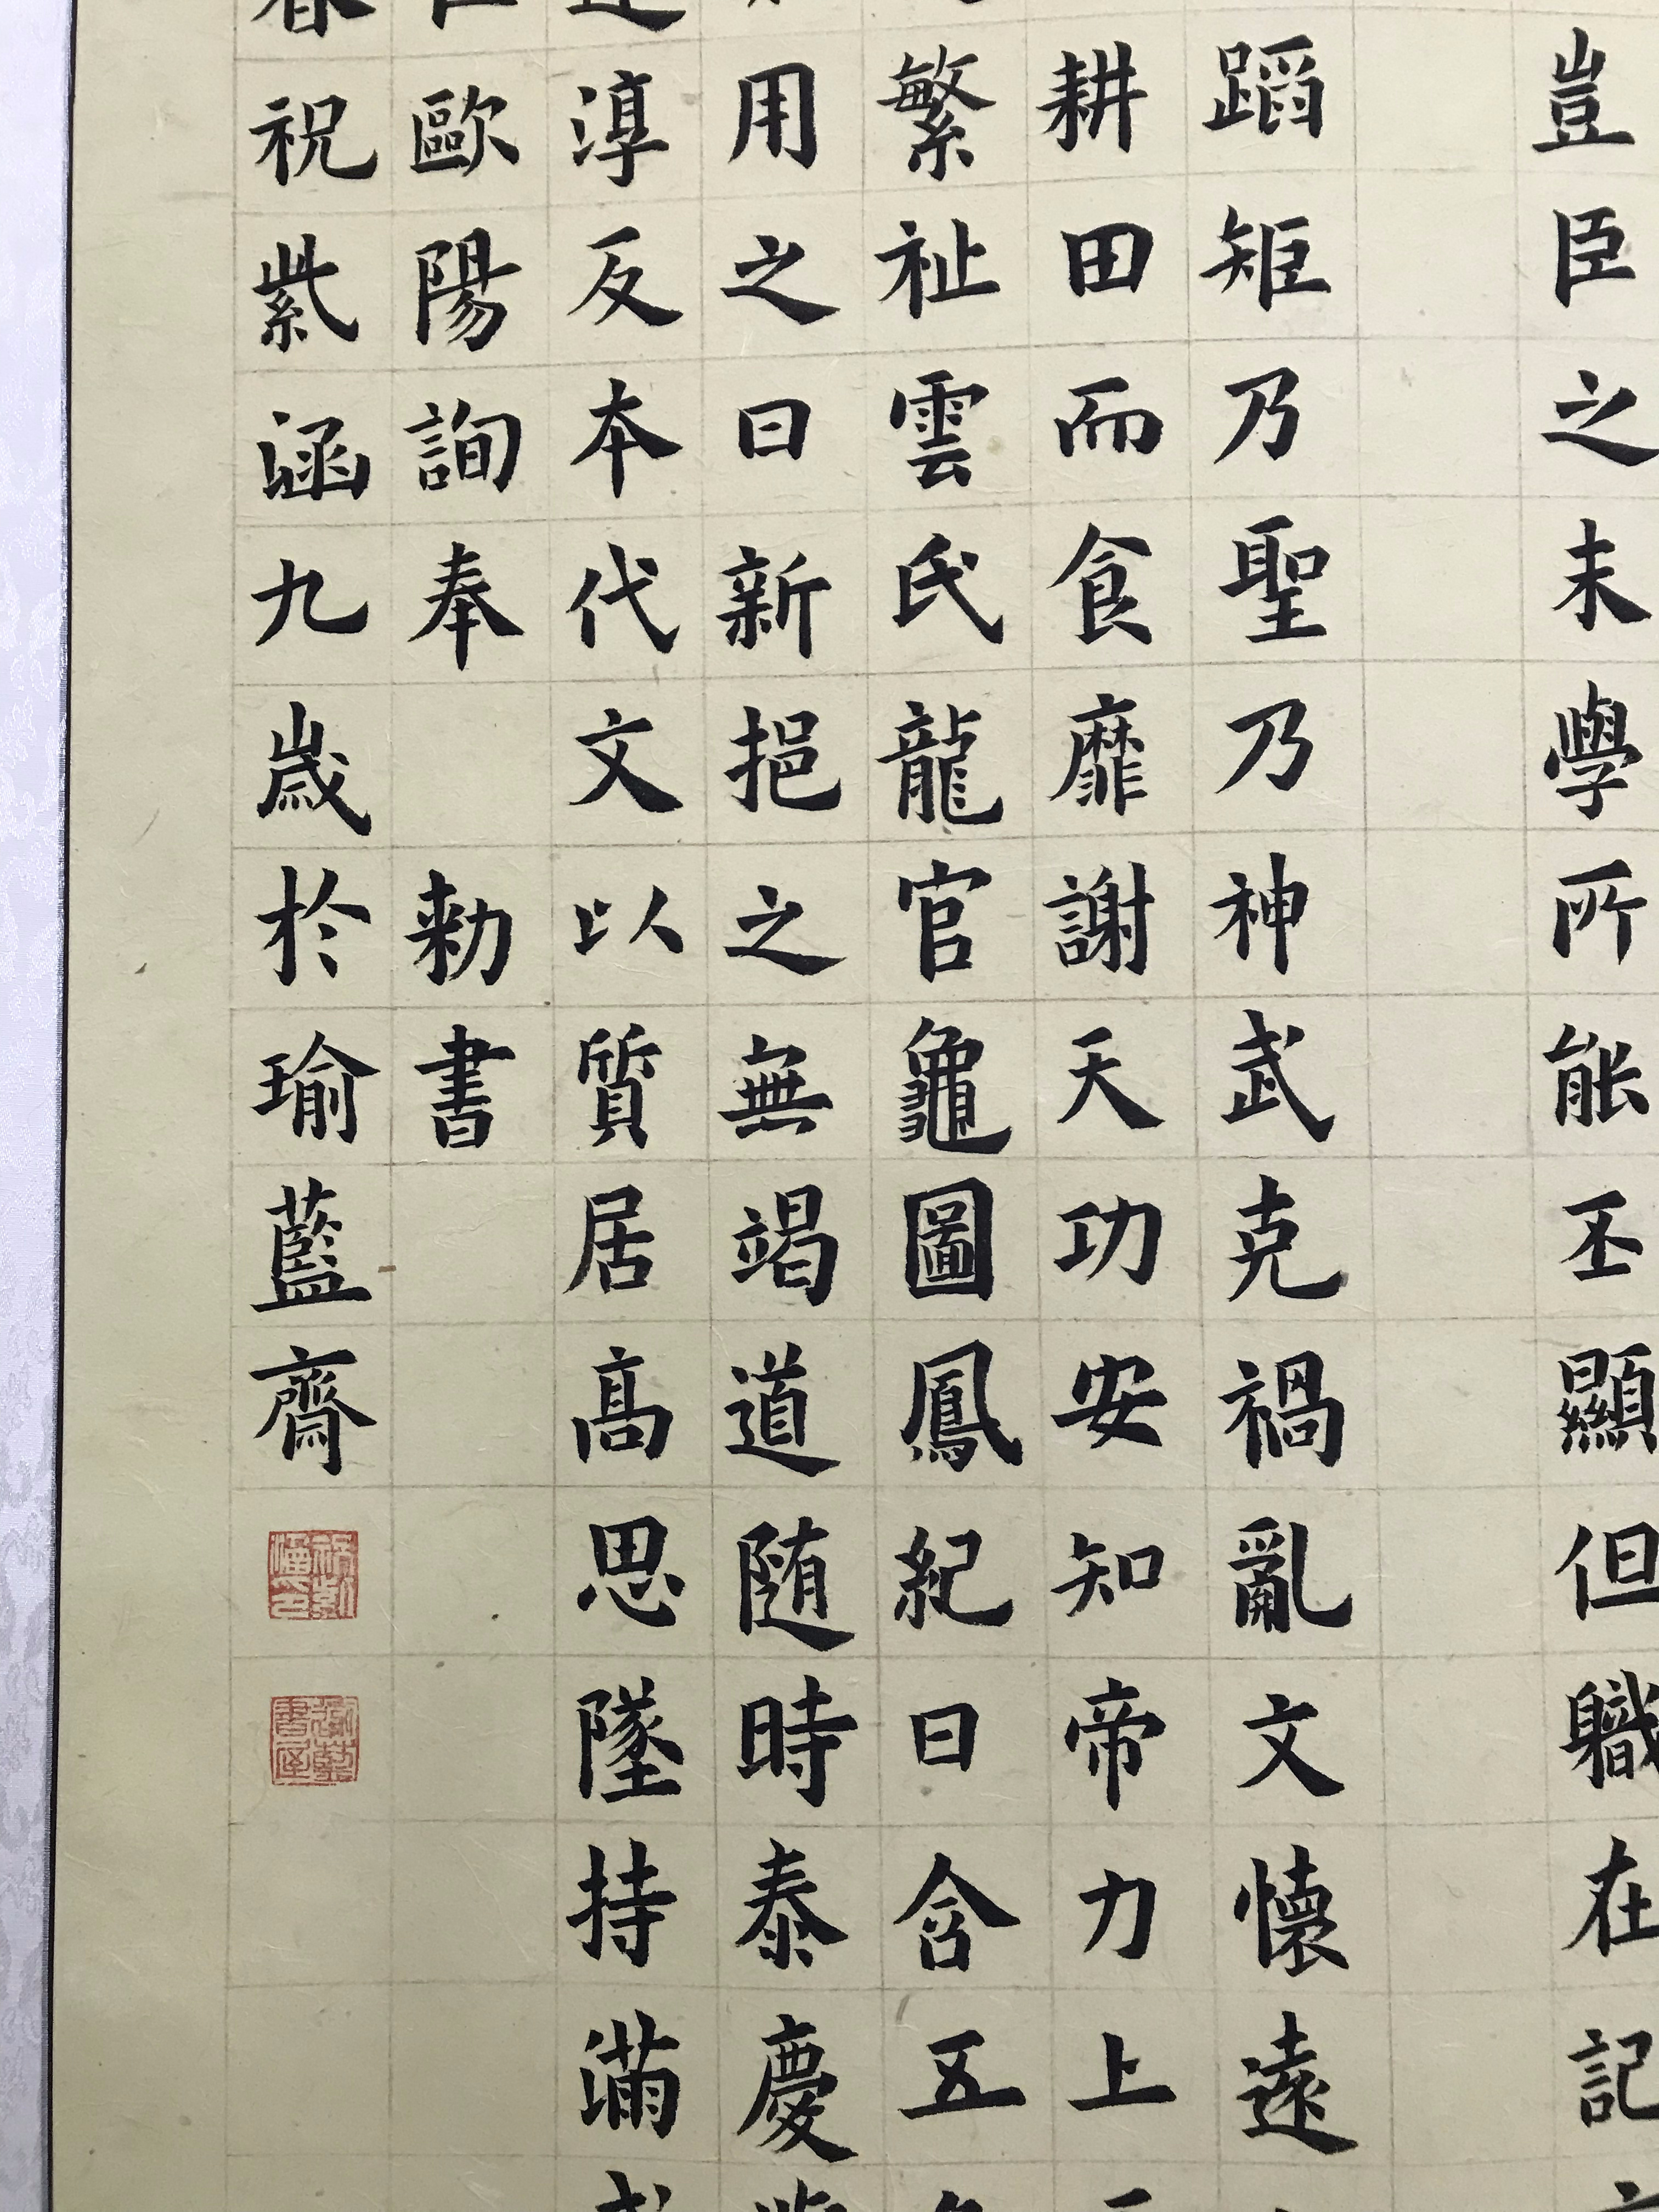 豈臣之末學所能丕顯但職在記
蹈矩乃聖乃神武克禍亂文懷遠
耕田而食靡謝天功安知帝力上
繁祉雲氏龍官龜圖鳳紀日含五
用之日新挹之無竭道随時泰慶
淳反本代文以質居高思墜持滿
歐陽詢奉 勅書
祝紫函九歲於瑜藍齋